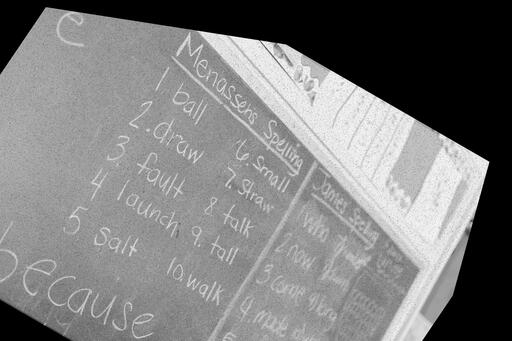 e
Menassens Spelling
1 ball
2. draw
3. fault
4 launch
5 salt
6. small
7. straw
8 talk
9. tall
10. walk
because
James Spelling
2. now
3. come along
4. made
5